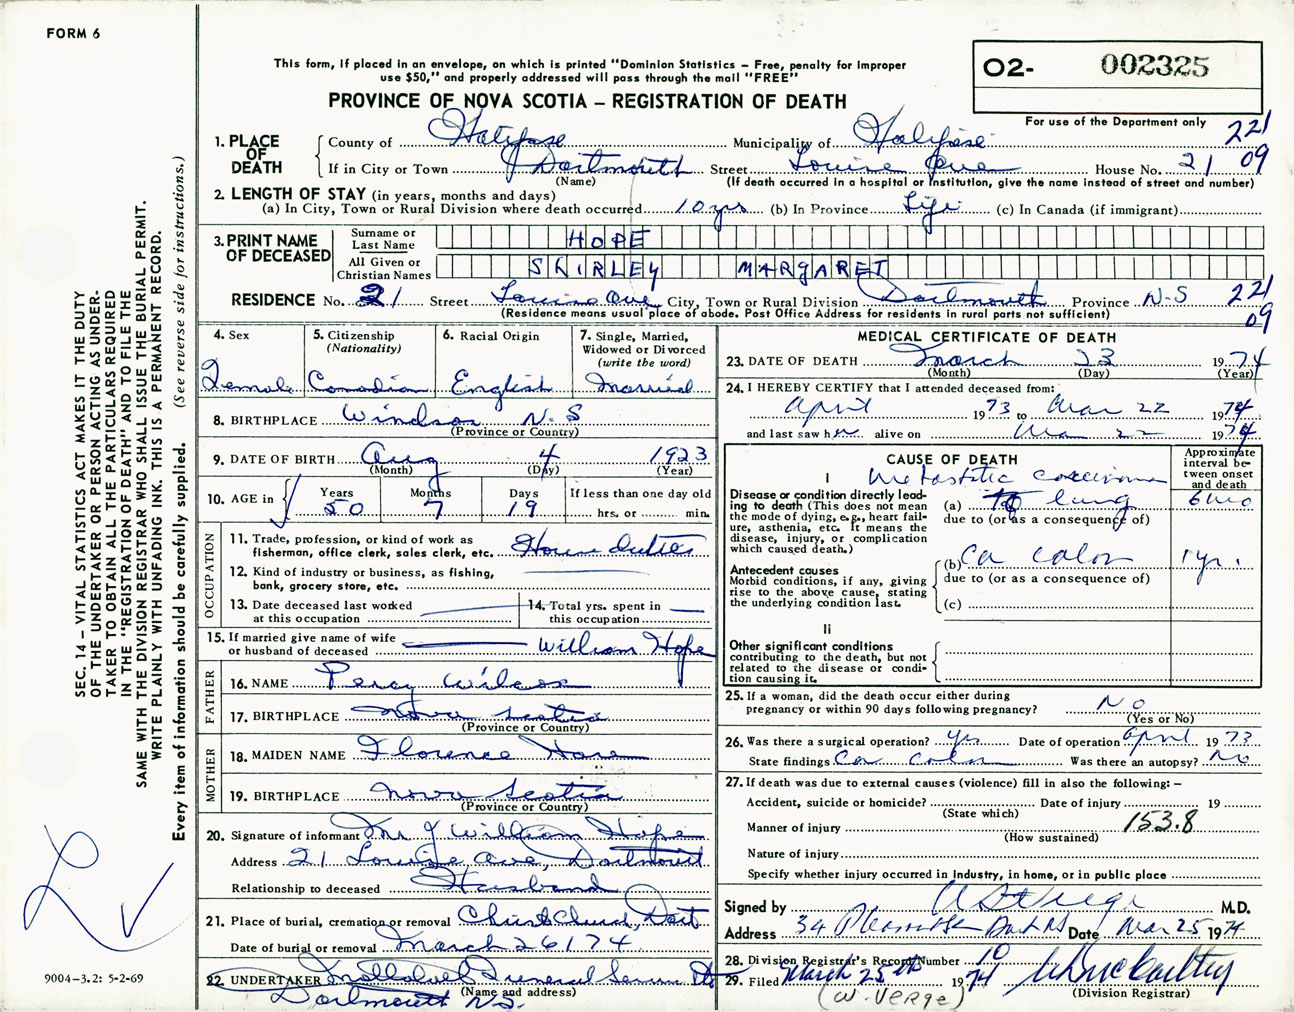 FORM 6
This form, if placed in an envelope, on which is printed "Dominion Statistics – Free, penalty for improper
use $50," and properly addressed will pass through the mail "FREE"
O2- 002325
PROVINCE OF NOVA SCOTIA – REGISTRATION OF DEATH
For use of the Department only
221
09
1. PLACE OF DEATH
County of Halifax Municipality of Halifax
If in City or Town Dartmouth Street Louise Ave House No. 21
(Name) (If death occurred in a hospital or institution, give the name instead of street and number)
2. LENGTH OF STAY (in years, months and days)
(a) In City, Town or Rural Division where death occurred 10 yrs (b) In Province Life (c) In Canada (if immigrant)
3. PRINT NAME OF DECEASED
Surname or Last Name HOPE
All Given or Christian Names SHIRLEY MARGARET
RESIDENCE No. 21 Street Louise Ave City, Town or Rural Division Dartmouth Province N-S 221
(Residence means usual place of abode. Post Office Address for residents in rural parts not sufficient) 09
4. Sex
Female
5. Citizenship
(Nationality)
Canadian
6. Racial Origin
English
7. Single, Married,
Widowed or Divorced
(write the word)
Married
8. BIRTHPLACE Windsor N-S
(Province or Country)
9. DATE OF BIRTH Aug 4 1923
(Month) (Day) (Year)
10. AGE in
Years Months Days If less than one day old
50 7 19 hrs. or min.
OCCUPATION
11. Trade, profession, or kind of work as
fisherman, office clerk, sales clerk, etc. House duties
12. Kind of industry or business, as fishing,
bank, grocery store, etc.
13. Date deceased last worked
at this occupation
14. Total yrs. spent in
this occupation
15. If married give name of wife
or husband of deceased William Hope
FATHER
16. NAME Percy Wilcox
17. BIRTHPLACE Nova Scotia
(Province or Country)
MOTHER
18. MAIDEN NAME Florence
19. BIRTHPLACE Nova Scotia
(Province or Country)
20. Signature of informant Mr J William Hope
Address 21 Louise Ave, Dartmouth
Relationship to deceased Husband
21. Place of burial, cremation or removal Christ Church, Dart
Date of burial or removal March 26/74
22. UNDERTAKER Funeral Service
(Name and address)
Dartmouth N.S.
MEDICAL CERTIFICATE OF DEATH
23. DATE OF DEATH March 23 1974
(Month) (Day) (Year)
24. I HEREBY CERTIFY that I attended deceased from:
April 1973 to Mar 22 1974
and last saw her alive on Mar 22 1974
CAUSE OF DEATH
Approximate
interval be-
tween onset
and death
I
Metastatic carcinoma
Disease or condition directly lead-
ing to death (This does not mean
the mode of dying, e.g., heart fail-
ure, asthenia, etc. It means the
disease, injury, or complication
which caused death.)
(a) to lung 6 mo
due to (or as a consequence of)
(b) Ca colon 1 yr.
due to (or as a consequence of)
(c)
Antecedent causes
Morbid conditions, if any, giving
rise to the above cause, stating
the underlying condition last.
II
Other significant conditions
contributing to the death, but not
related to the disease or condi-
tion causing it.
25. If a woman, did the death occur either during
pregnancy or within 90 days following pregnancy? No
(Yes or No)
26. Was there a surgical operation? yes Date of operation April 1973
State findings Ca colon Was there an autopsy? No
27. If death was due to external causes (violence) fill in also the following: –
Accident, suicide or homicide? Date of injury 19
(State which)
Manner of injury 153.8
(How sustained)
Nature of injury
Specify whether injury occurred in industry, in home, or in public place
Signed by M.D.
Address 34 Date Mar 25 1974
28. Division Registrar's Record Number 10
29. Filed March 25th 1974
(W. VERGE) (Division Registrar)
SEC. 14 – VITAL STATISTICS ACT MAKES IT THE DUTY
OF THE UNDERTAKER OR PERSON ACTING AS UNDER-
TAKER TO OBTAIN ALL THE PARTICULARS REQUIRED
IN THE "REGISTRATION OF DEATH" AND TO FILE THE
SAME WITH THE DIVISION REGISTRAR WHO SHALL ISSUE THE BURIAL PERMIT.
WRITE PLAINLY WITH UNFADING INK. THIS IS A PERMANENT RECORD.
Every item of information should be carefully supplied. (See reverse side for instructions.)
9004–3.2: 5-2-69